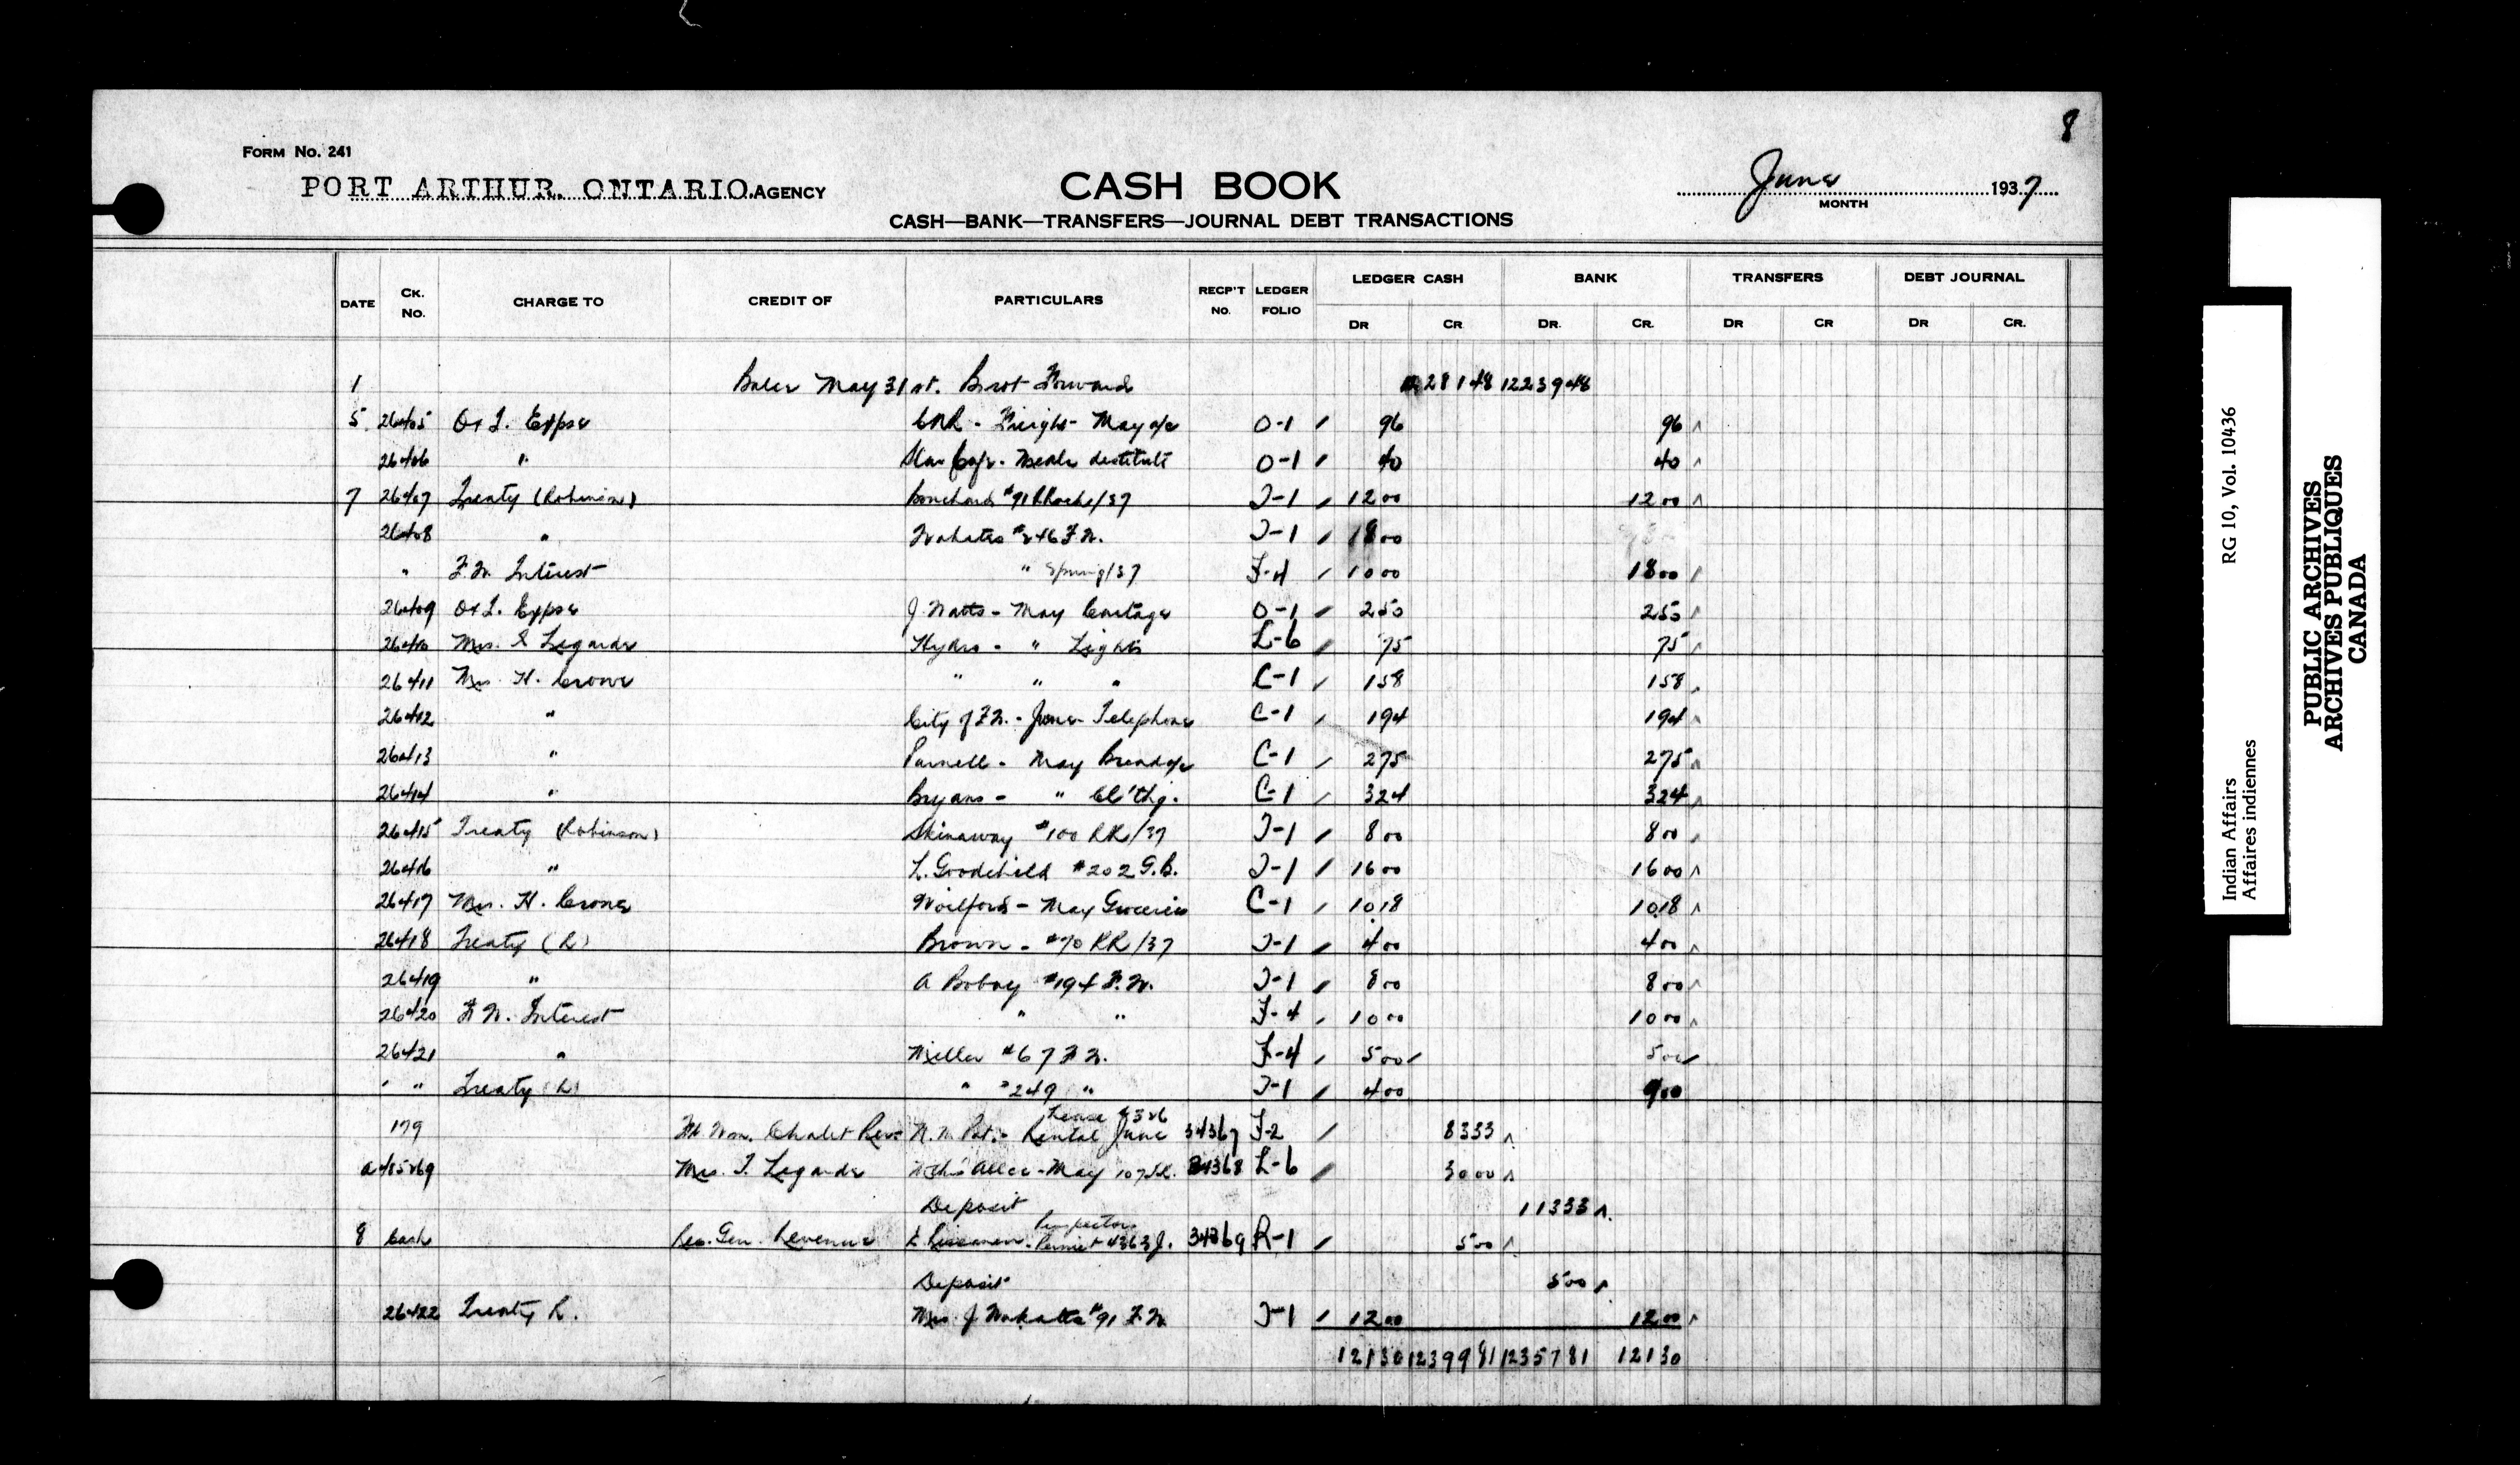 8
FORM NO. 241
PORT ARTHUR. ONTARIO. AGENCY
CASH BOOK
June 1937
MONTH
CASH—BANK—TRANSFERS—JOURNAL DEBT TRANSACTIONS
LEDGER CASH BANK TRANSFERS DEBT JOURNAL
DATE CK. No. CHARGE TO CREDIT OF PARTICULARS RECP'T No. LEDGER FOLIO DR CR DR. CR. DR CR DR CR.
1 May 31 st. Brot Forward 28148 1223948
5 26405 O-1 96 96
26406 " Meals destitute O-1 40 40
7 26407 Treaty (Robinson) Bouchard #91 /37 J-1 1200 1200
26408 " #246 F.W. J-1 1800
" F.W. Interest " Spring/37 F-4 1000 1800
26409 J. Watts - May Cartage O-1 250 250
26410 Mrs. Legarde Hydro - " Lights L-6 75 75
26411 Mrs. H. Crowe " " " C-1 158 158
26412 " City of F.W. - June Telephone C-1 194 194
26413 " Parnell - May Bread a/c C-1 275 275
26414 " Bryans - " Cl'thg. C-1 324 324
26415 Treaty (Robinson) Skinaway #100 RR/37 J-1 800 800
26416 " L. Goodchild #202 G.B. J-1 1600 1600
26417 Mrs. H. Crowe May Groceries C-1 1018 1018
26418 Treaty (R) Brown - #70 RR/37 J-1 400 400
26419 " A #194 F.W. J-1 800 800
26420 F.W. Interest " " F-4 1000 1000
26421 " Miller #67 F.W. F-4 500 500
" " Treaty (R) " #249 " J-1 400 900
Lease
179 Rental June 34367 F-2 8333
Mrs. Legarde May 34368 L-6 3000
Deposit 11333
8 Cash Gen. Revenue Permit 34369 R-1 500
Deposit 500
26422 Treaty R. Mrs. J #91 F.W. J-1 1200 1200
12130 1239981 1235781 12130
Indian Affairs RG 10, Vol. 10436
Affaires indiennes
PUBLIC ARCHIVES
ARCHIVES PUBLIQUES
CANADA